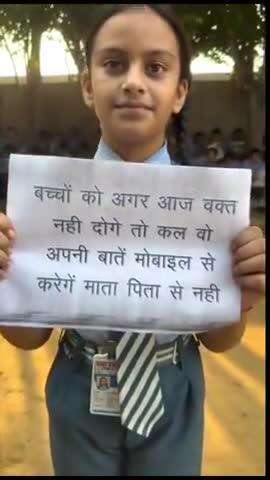 बच्चों को अगर आज वक्त
नही दोगे तो कल वो
अपनी बातें मोबाइल से
करेगें माता पिता से नही